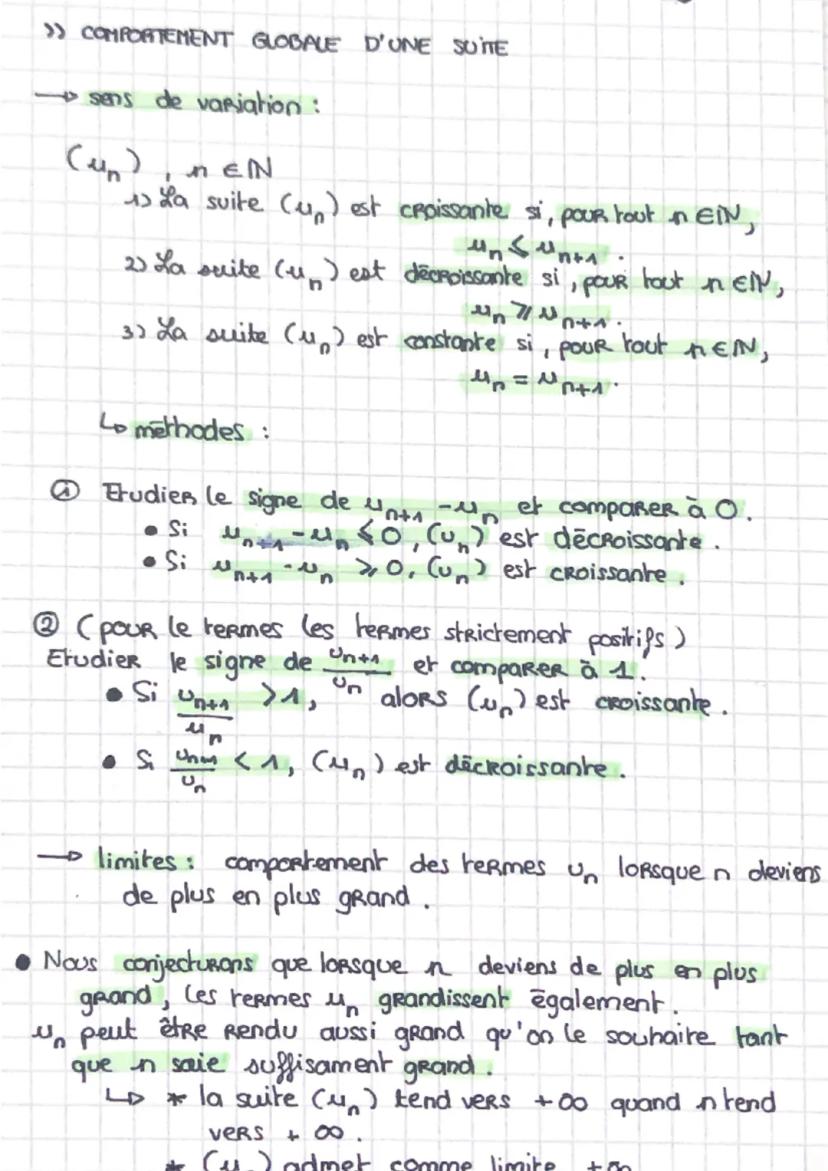 >> COMPORTEMENT GLOBALE D'UNE SUITE
→ sens de variation :
(uₙ), n ∈ ℕ
1) La suite (uₙ) est croissante si, pour tout n ∈ ℕ,
uₙ ⩽ uₙ₊₁.
2) La suite (uₙ) est décroissante si, pour tout n ∈ ℕ,
uₙ ⩾ uₙ₊₁.
3) La suite (uₙ) est constante si, pour tout n ∈ ℕ,
uₙ = uₙ₊₁.
↳ méthodes :
① Etudier le signe de uₙ₊₁ - uₙ et comparer à 0.
• Si uₙ₊₁ - uₙ ⩽ 0, (uₙ) est décroissante.
• Si uₙ₊₁ - uₙ ⩾ 0, (uₙ) est croissante.
② (pour le termes les termes strictement positifs)
Etudier le signe de uₙ₊₁/uₙ et comparer à 1.
• Si uₙ₊₁/uₙ > 1, alors (uₙ) est croissante.
• Si uₙ₊₁/uₙ < 1, (uₙ) est décroissante.
→ limites : comportement des termes uₙ lorsque n deviens
de plus en plus grand.
• Nous conjecturons que lorsque n deviens de plus en plus
grand, les termes uₙ grandissent également.
uₙ peut être rendu aussi grand qu'on le souhaite tant
que n saie suffisament grand.
↳ * la suite (uₙ) tend vers +∞ quand n tend
vers +∞.
* (uₙ) admet comme limite +∞